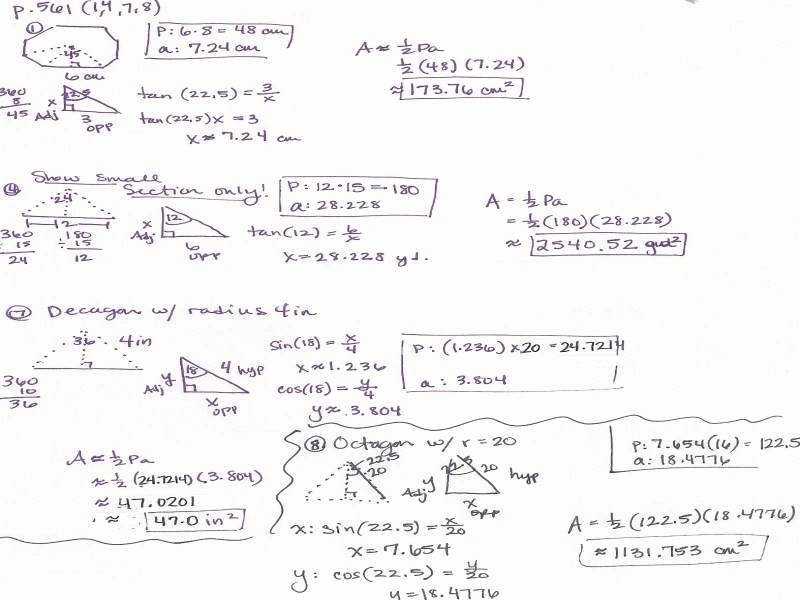 p. 561 (1,4,7,8)
① P: 6·8 = 48 cm
a: 7.24 cm
45
6 cm
A ≈ ½Pa
½(48)(7.24)
≈ 173.76 cm²
360
8
45
22.5
x
Adj
3
opp
tan (22.5) = 3/x
tan(22.5)x = 3
x ≈ 7.24 cm
④ Show small
Section only!
24
12
360
÷ 15
24
180
÷ 15
12
x
Adj
12
6
opp
P: 12·15 = 180
a: 28.228
tan(12) = 6/x
x = 28.228 yd.
A = ½Pa
= ½(180)(28.228)
≈ 2540.52
⑦ Decagon w/ radius 4in
36
4in
360
10
36
y
Adj
18
4 hyp
x
opp
sin(18) = x/4
x ≈ 1.236
cos(18) = y/4
y ≈ 3.804
P: (1.236) x 20 = 24.7214
a: 3.804
A ≈ ½Pa
≈ ½ (24.7214)(3.804)
≈ 47.0201
≈ 47.0 in²
⑧ Octagon w/ r = 20
22.5
20
Adj
y
22.5
20
hyp
x
opp
x: sin(22.5) = x/20
x = 7.654
y: cos(22.5) = y/20
y = 18.4776
P: 7.654(16) = 122.5
a: 18.4776
A = ½(122.5)(18.4776)
≈ 1131.753 cm²